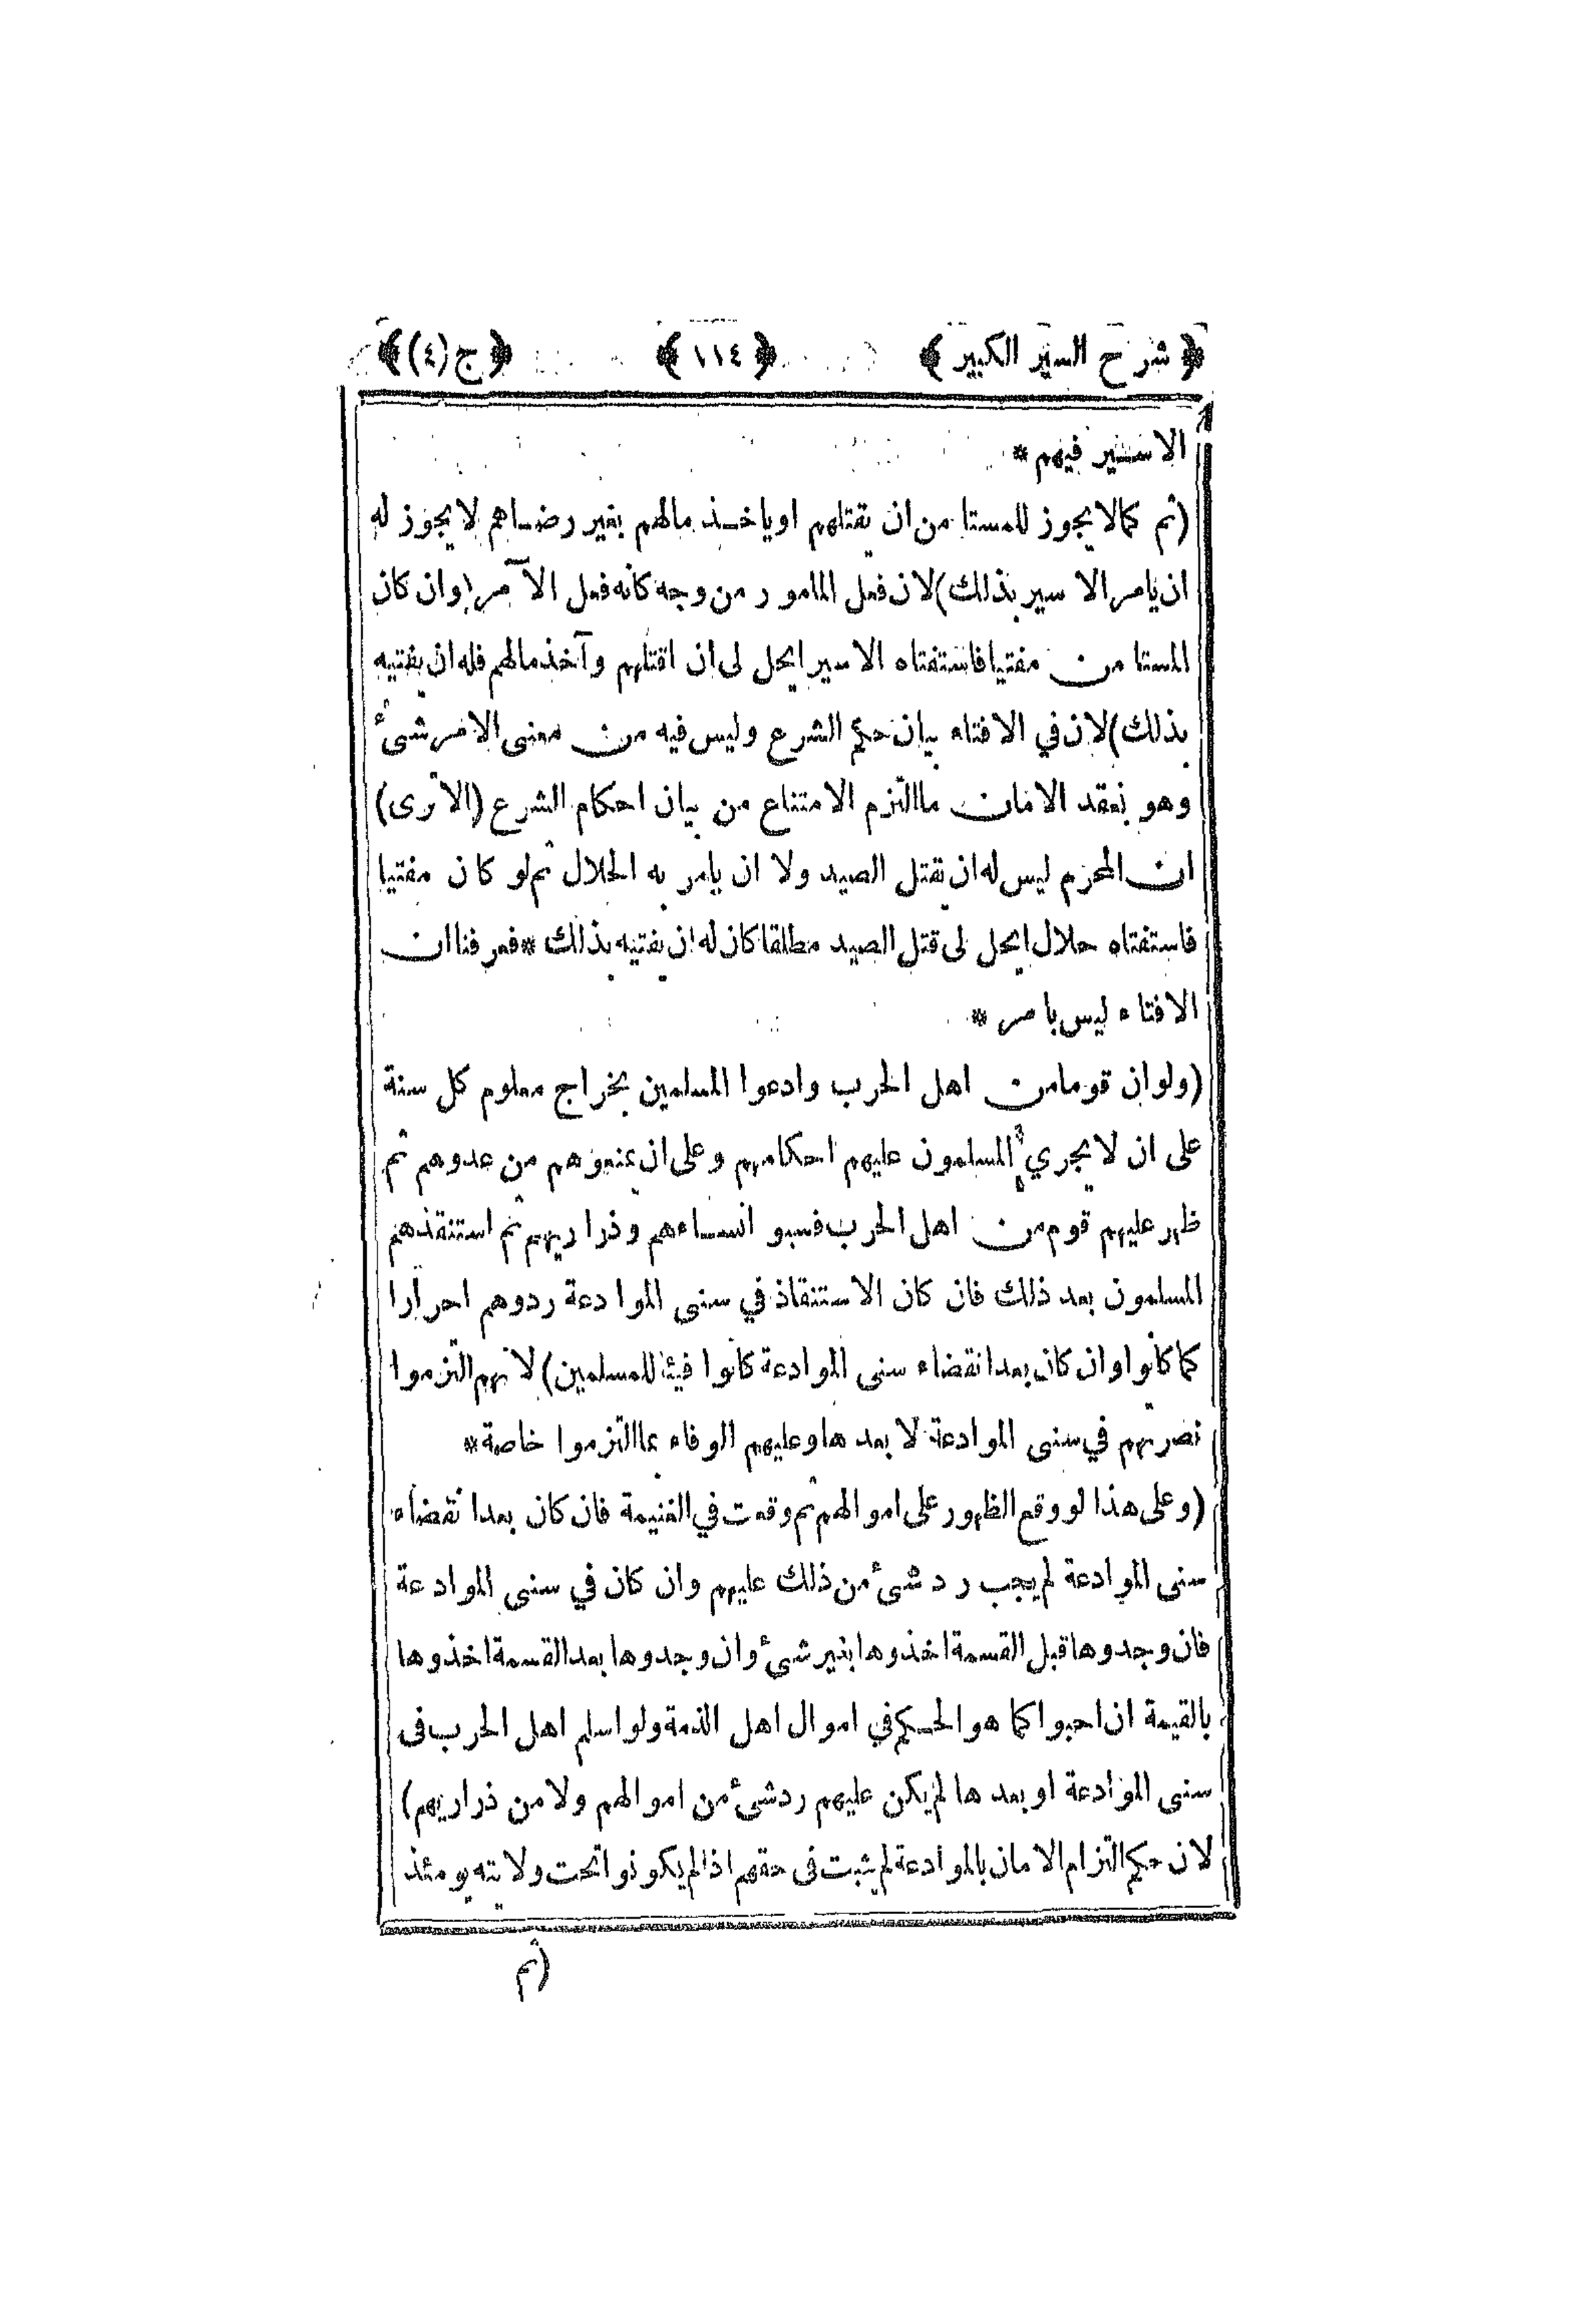 ﴿ شرح السير الكبير ﴾ ﴿ ١١٤ ﴾ ﴿ ج (٤) ﴾
الاسير فيهم *
(ثم كما لا يجوز للمستا من ان يقتلهم او ياخذ مالهم بغير رضاهم لا يجوز له
ان يامر الا سير بذلك) لان فعل المامو ر من وجه كانه فعل الآ مر (وان كان
المستا من مفتيا فاستفتاه الا سير ايحل لى ان اقتلهم وآخذ مالهم فله ان يفتيه
بذلك) لان في الا فتاء بيان حكم الشرع وليس فيه من معنى الامر شىٔ
وهو بعقد الامان ما التزم الا متناع من بيان احكام الشرع (الا ترى)
ان المحرم ليس له ان يقتل الصيد ولا ان يامر به الحلال ثم لو كان مفتيا
فاستفتاه حلال ايحل لى قتل الصيد مطلقا كان له ان يفتيه بذلك * فعر فنا ان
الا فتاء ليس با مر *
(ولو ان قوما من اهل الحرب وادعوا المسلمين بخراج معلوم كل سنة
على ان لا يجري المسلمون عليهم احكامهم وعلى ان يمنعوهم من عدوهم ثم
ظهر عليهم قوم من اهل الحرب فسبو انساءهم وذرا ريهم ثم استنقذهم
المسلمون بعد ذلك فان كان الا ستنقاذ في سنى الموا دعة ردوهم احرارا
كما كانوا وان كان بعد انقضاء سنى الموادعة كانوا فيئا للمسلمين) لا نهم التزموا
نصرتهم في سنى الموادعة لا بعد ها وعليهم الوفاء بما التزموا خاصة *
(وعلى هذا لو وقع الظهور على اموالهم ثم وقعت في الغنيمة فان كان بعد انقضاء
سنى الموادعة لم يجب رد شىٔ من ذلك عليهم وان كان في سنى الموادعة
فان وجدوها قبل القسمة اخذوها بغير شىٔ وان وجدوها بعد القسمة اخذوها
بالقيمة ان احبوا كما هو الحكم في اموال اهل الذمة ولو اسلم اهل الحرب فى
سنى الموادعة او بعد ها لم يكن عليهم رد شىٔ من اموالهم ولا من ذراريهم)
لان حكم التزام الا مان بالموادعة لم يثبت فى حقهم اذا لم يكونوا تحت ولا يته يومئذ
(ثم